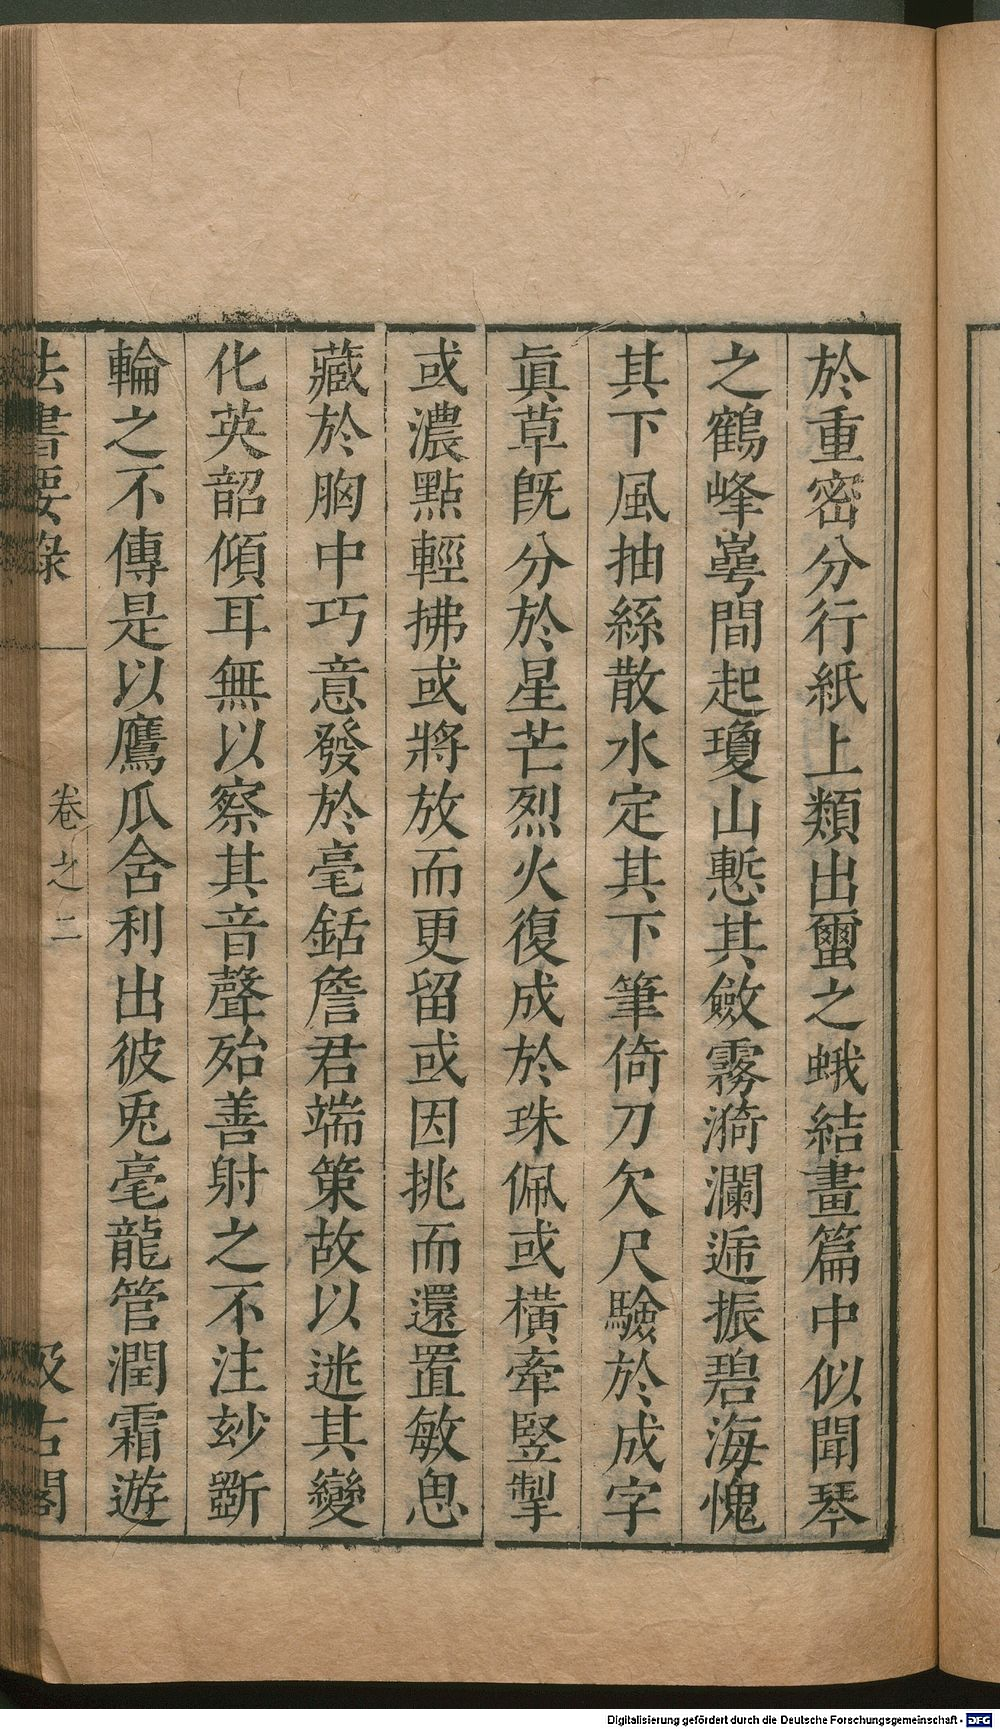 於重密分行紙上類出璽之蛾結畫篇中似聞琴
之鶴峰崿間起瓊山慙其斂霧漪瀾遞振碧海愧
其下風抽絲散水定其下筆倚刀欠尺驗於成字
眞草旣分於星芒烈火復成於珠佩或橫牽竪掣
或濃點輕拂或將放而更留或因挑而還置敏思
藏於胸中巧意發於毫銛詹君端策故以迯其變
化英韶傾耳無以察其音聲殆善射之不注玅斲
輪之不傳是以鷹爪含利出彼兎毫龍管潤霜遊
法書要錄 卷之二 汲古閣
Digitalisierung gefördert durch die Deutsche Forschungsgemeinschaft - DFG